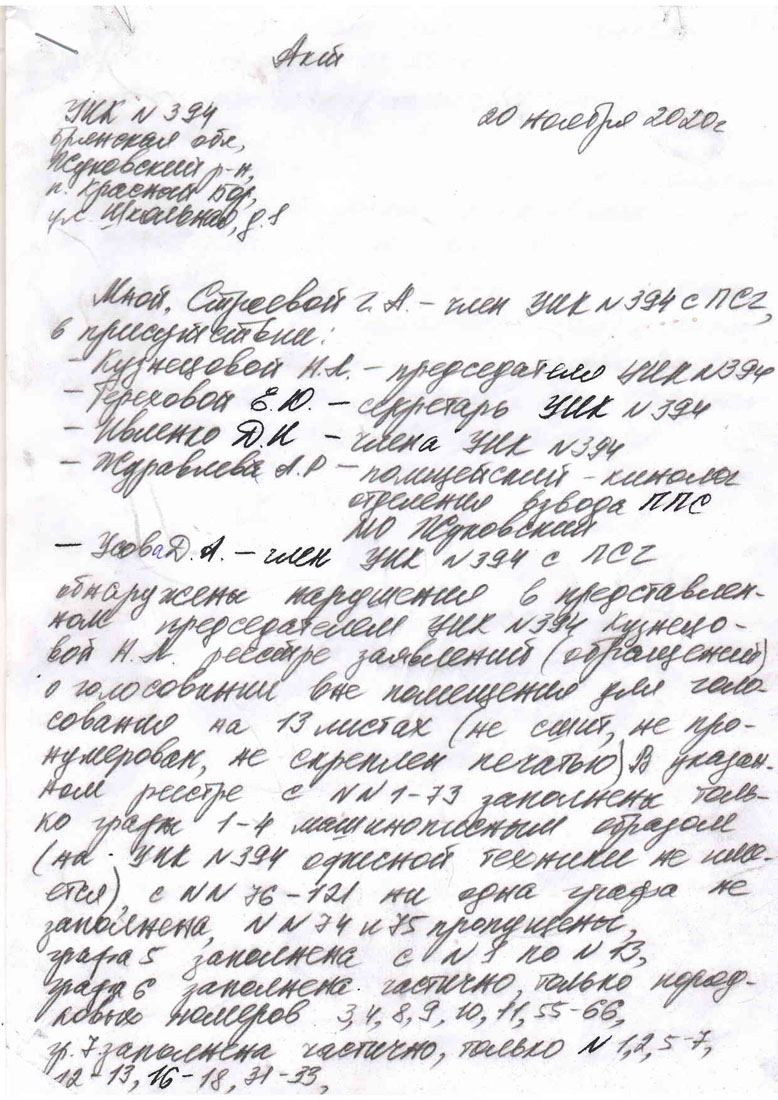 Акт
УИК N 394
Брянская обл,
Жуковский р-н,
п. Красный Бор,
ул. Школьная, д. 1
20 ноября 2020г
Мной, Строевой Г. А. – член УИК N 394 с ПСГ,
в присутствии:
– Кузнецовой Н.А. – председателю УИК N 394
– Тереховой Е.Ю. – секретарь УИК N 394
– Ивленко Д.И – члена УИК N 394
– Журавлева А.Р – полицейский – кинолог
отделения взвода ППС
МО Жуковский
– Усова Д. А. – член УИК N 394 с ПСГ
обнаружены нарушения в представлен-
ном председателем УИК N 394 Кузнецо-
вой Н. А. реестре заявлений (обращений)
о голосовании вне помещения для голо-
сования на 13 листах (не сшит, не про-
нумерован, не скреплен печатью) В указан-
ном реестре с NN 1-73 заполнены толь-
ко графы 1-4 машинописным образом
(на УИК N 394 офисной техники не име-
ется), с NN 76-121 ни одна графа не
заполнена, NN 74 и 75 пропущены,
графа 5 заполнена с N 1 по N 13,
графа 6 заполнена частично, только поряд-
ковых номеров 3,4,8,9,10,11,55-66,
гр. 7 заполнена частично, только N 1,2,5-7,
12-13, 16-18, 31-33,